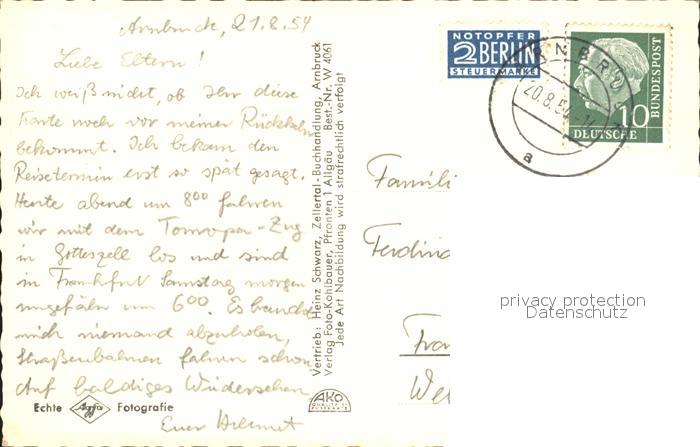 Arnbruck, 21.8.54
Liebe Eltern!
Ich weiß nicht, ob Ihr diese
Karte noch vor meiner Rückkehr
bekommt. Ich bekam den
Reisetermin erst so spät gesagt.
Heute abend um 8⁰⁰ fahren
wir mit dem Touropa-Zug
in Gotteszell los und sind
in Frankfurt Samstag morgen
ungefähr um 6⁰⁰. Es braucht
mich niemand abzuholen,
Straßenbahnen fahren schon.
Auf baldiges Wiedersehen
Euer Helmut
Echte Agfa Fotografie
Vertrieb: Heinz Schwarz, Zellertal-Buchhandlung, Arnbruck
Verlag Foto-Kohlbauer, Pfronten 1 Allgäu Best.-Nr. W 4061
Jede Art Nachbildung wird strafrechtlich verfolgt
AKO
NOTOPFER
2 BERLIN
STEUERMARKE
ARNBRU
20.8.54
a
10
DEUTSCHE
BUNDESPOST
Famili
Ferdina
Fran
privacy protection
Datenschutz